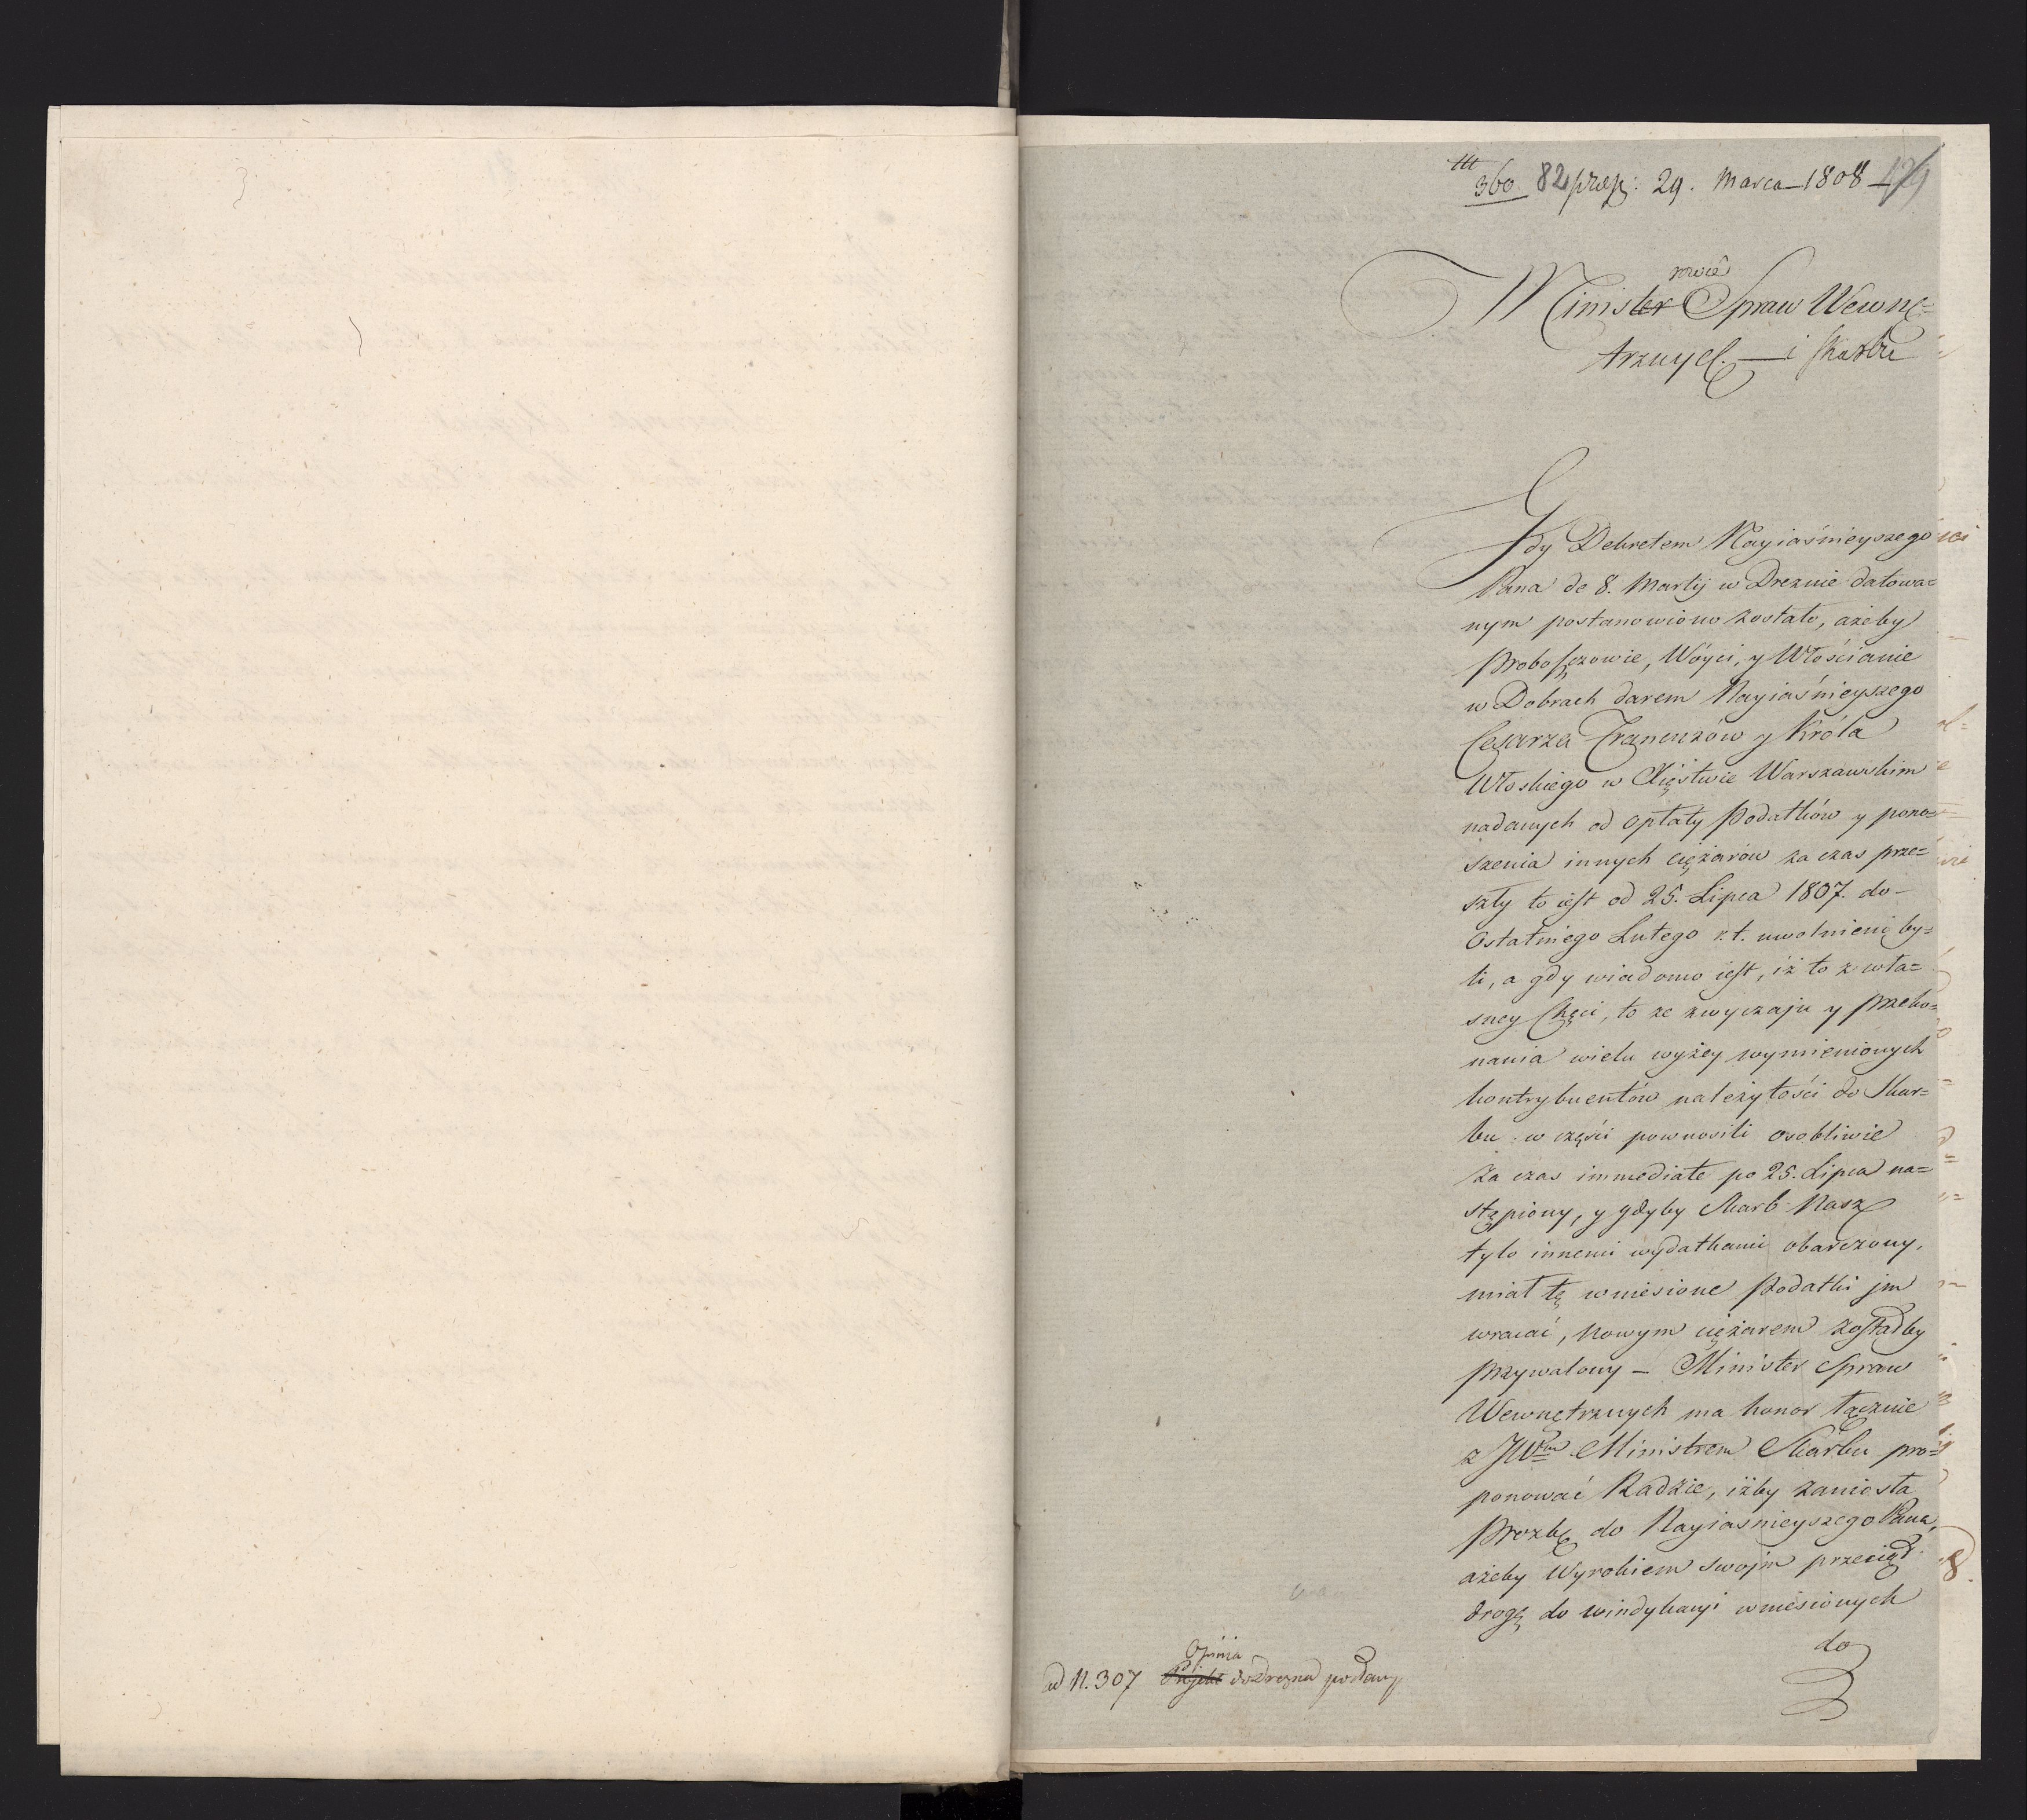 360. 82 præs: 29. Marca 1808 179
rowie
Minister Spraw Wewnę=
trznych. — i Skarbu
Gdy Dekretem Nayiaśnieyszego
Pana de 8. Martij w Dreznie datowa=
nym postanowiono zostało, ażeby
Proboszczowie, Wóyci, y Włościanie
w Dobrach darem Nayiaśnieyszego
Cesarza Francuzów y Króla
Włoskiego w Xięstwie Warszawskim
nadanych od opłaty Podatków y pono=
szenia innych ciężarów za czas prze=
szły to iest od 25. Lipca 1807. do
Ostatniego Lutego r. t. uwolnieni by=
li, a gdy wiadomo iest, iż to z wła=
sney Chęci, to ze zwyczaju y przeko=
nania wielu wyżey wymienionych
kontrybuentów należytości do Skar=
bu w części pownosili osobliwie
za czas immediate po 25. Lipca na=
stępiony, y gdyby Skarb Nasz
tylo innemi wydatkami obarczony,
miał tę wniesione Podatki jm
wracać, nowym ciężarem zostałby
przywalony — Minister Spraw
Wewnętrznych ma honor łącznie
z JW. Ministrem Skarbu pro=
ponować Radzie, iżby zaniosła
prozbę do Nayiaśnieyszego Pana,
ażeby Wyrokiem swojm przeciął
drogę do windykacyi wniesionych
do
Opinia
ad N. 307 Projekt do Drezna posłany